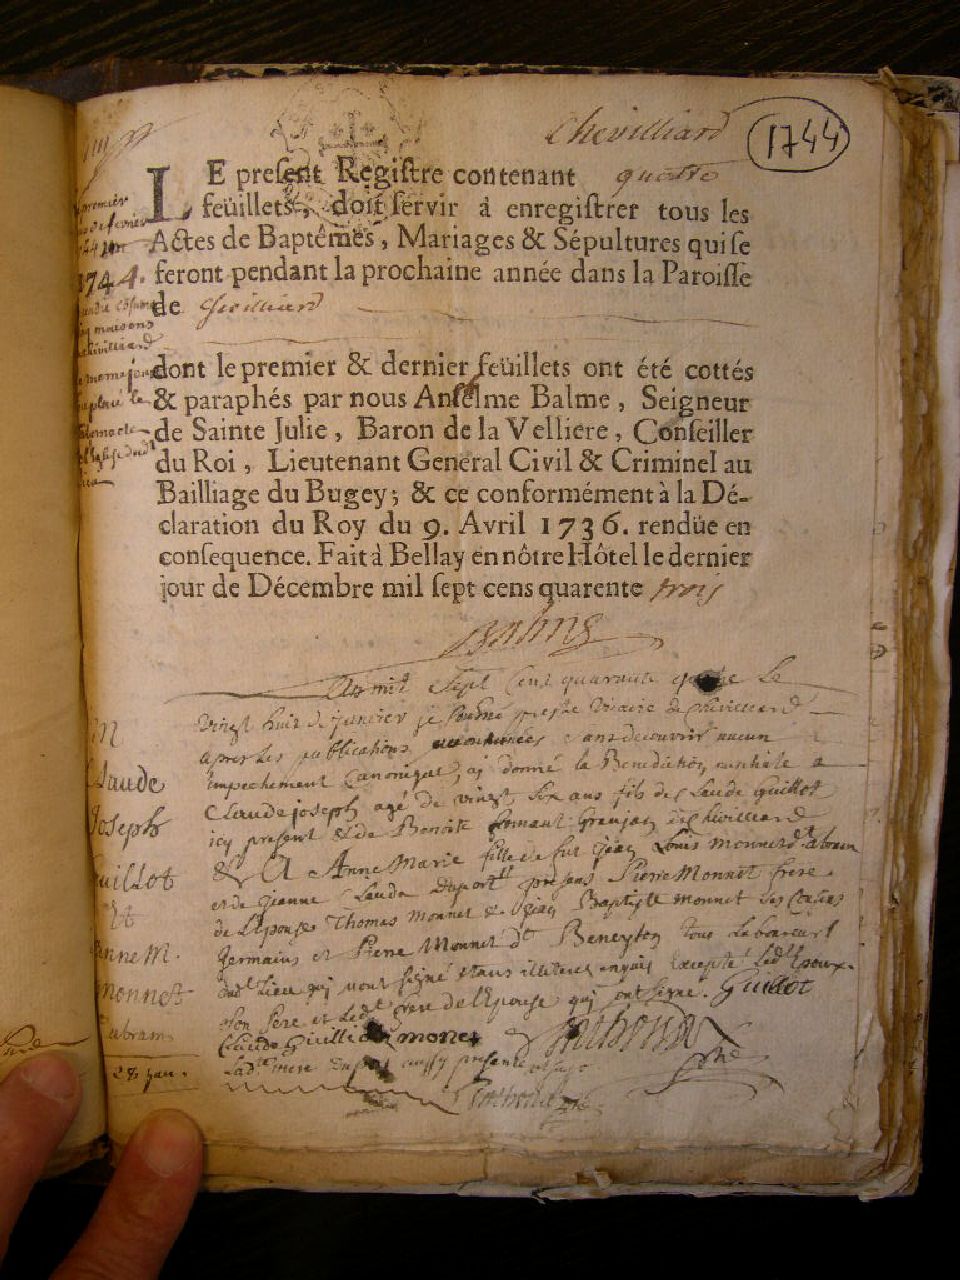 Chevilliard
1744
LE present Registre contenant quattre
feüillets, doit servir à enregistrer tous les
Actes de Baptêmes, Mariages & Sépultures qui se
feront pendant la prochaine année dans la Paroisse
de Chevilliard
dont le premier & dernier feüillets ont été cottés
& paraphés par nous Anselme Balme, Seigneur
de Sainte Julie, Baron de la Velliere, Conseiller
du Roi, Lieutenant General Civil & Criminel au
Bailliage du Bugey; & ce conformément à la Dé-
claration du Roy du 9. Avril 1736. rendüe en
consequence. Fait à Bellay en nôtre Hôtel le dernier
jour de Décembre mil sept cens quarente trois
Balme
premier
1744.
maisons
chevilliard
le meme jour
L'an mil sept cent quarante quatre le
vingt huit de janvier je soussigné prestre vicaire de chevilliard
apres les publications accoutumées sans decouvrir aucun
empechement canonique, aj donné la Benediction nuptiale a
Claude joseph agé de vingt six ans fils de Claude Guillot
icy present & de Benoite Grenjan de chevilliard
& A Anne Marie fille de feu jean Louis monnet d. abram
et de jeanne Claude Duport presens Pierre Monnet frere
de L'Epouse Thomas monnet & jean Baptiste monnet ses cousins
Germains et Pierre Monnet dt Beneyton tous Laboureurs
dud. Lieu qui n'ont signé enquis Excepté led. Epoux
son Pere et led. frere de l'Epouse qui ont signé. Guillot
Claude Guilliot monet
lad. mere Duport aussy presente
M
Claude
Joseph
Guillot
Et
Anne M.
Monnet
abram
28 janv.